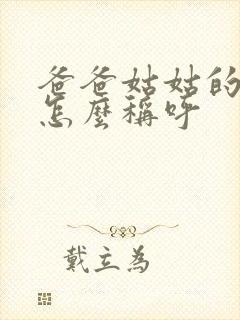 爸爸姑姑的
怎麼稱呼
戴立為